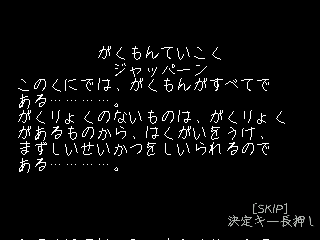 がくもんていこく
ジャッパーン
このくにでは、がくもんがすべてで
ある…………。
がくりょくのないものは、がくりょく
があるものから、はくがいをうけ、
まずしいせいかつをしいられるので
ある…………。
[SKIP]
決定キー長押し